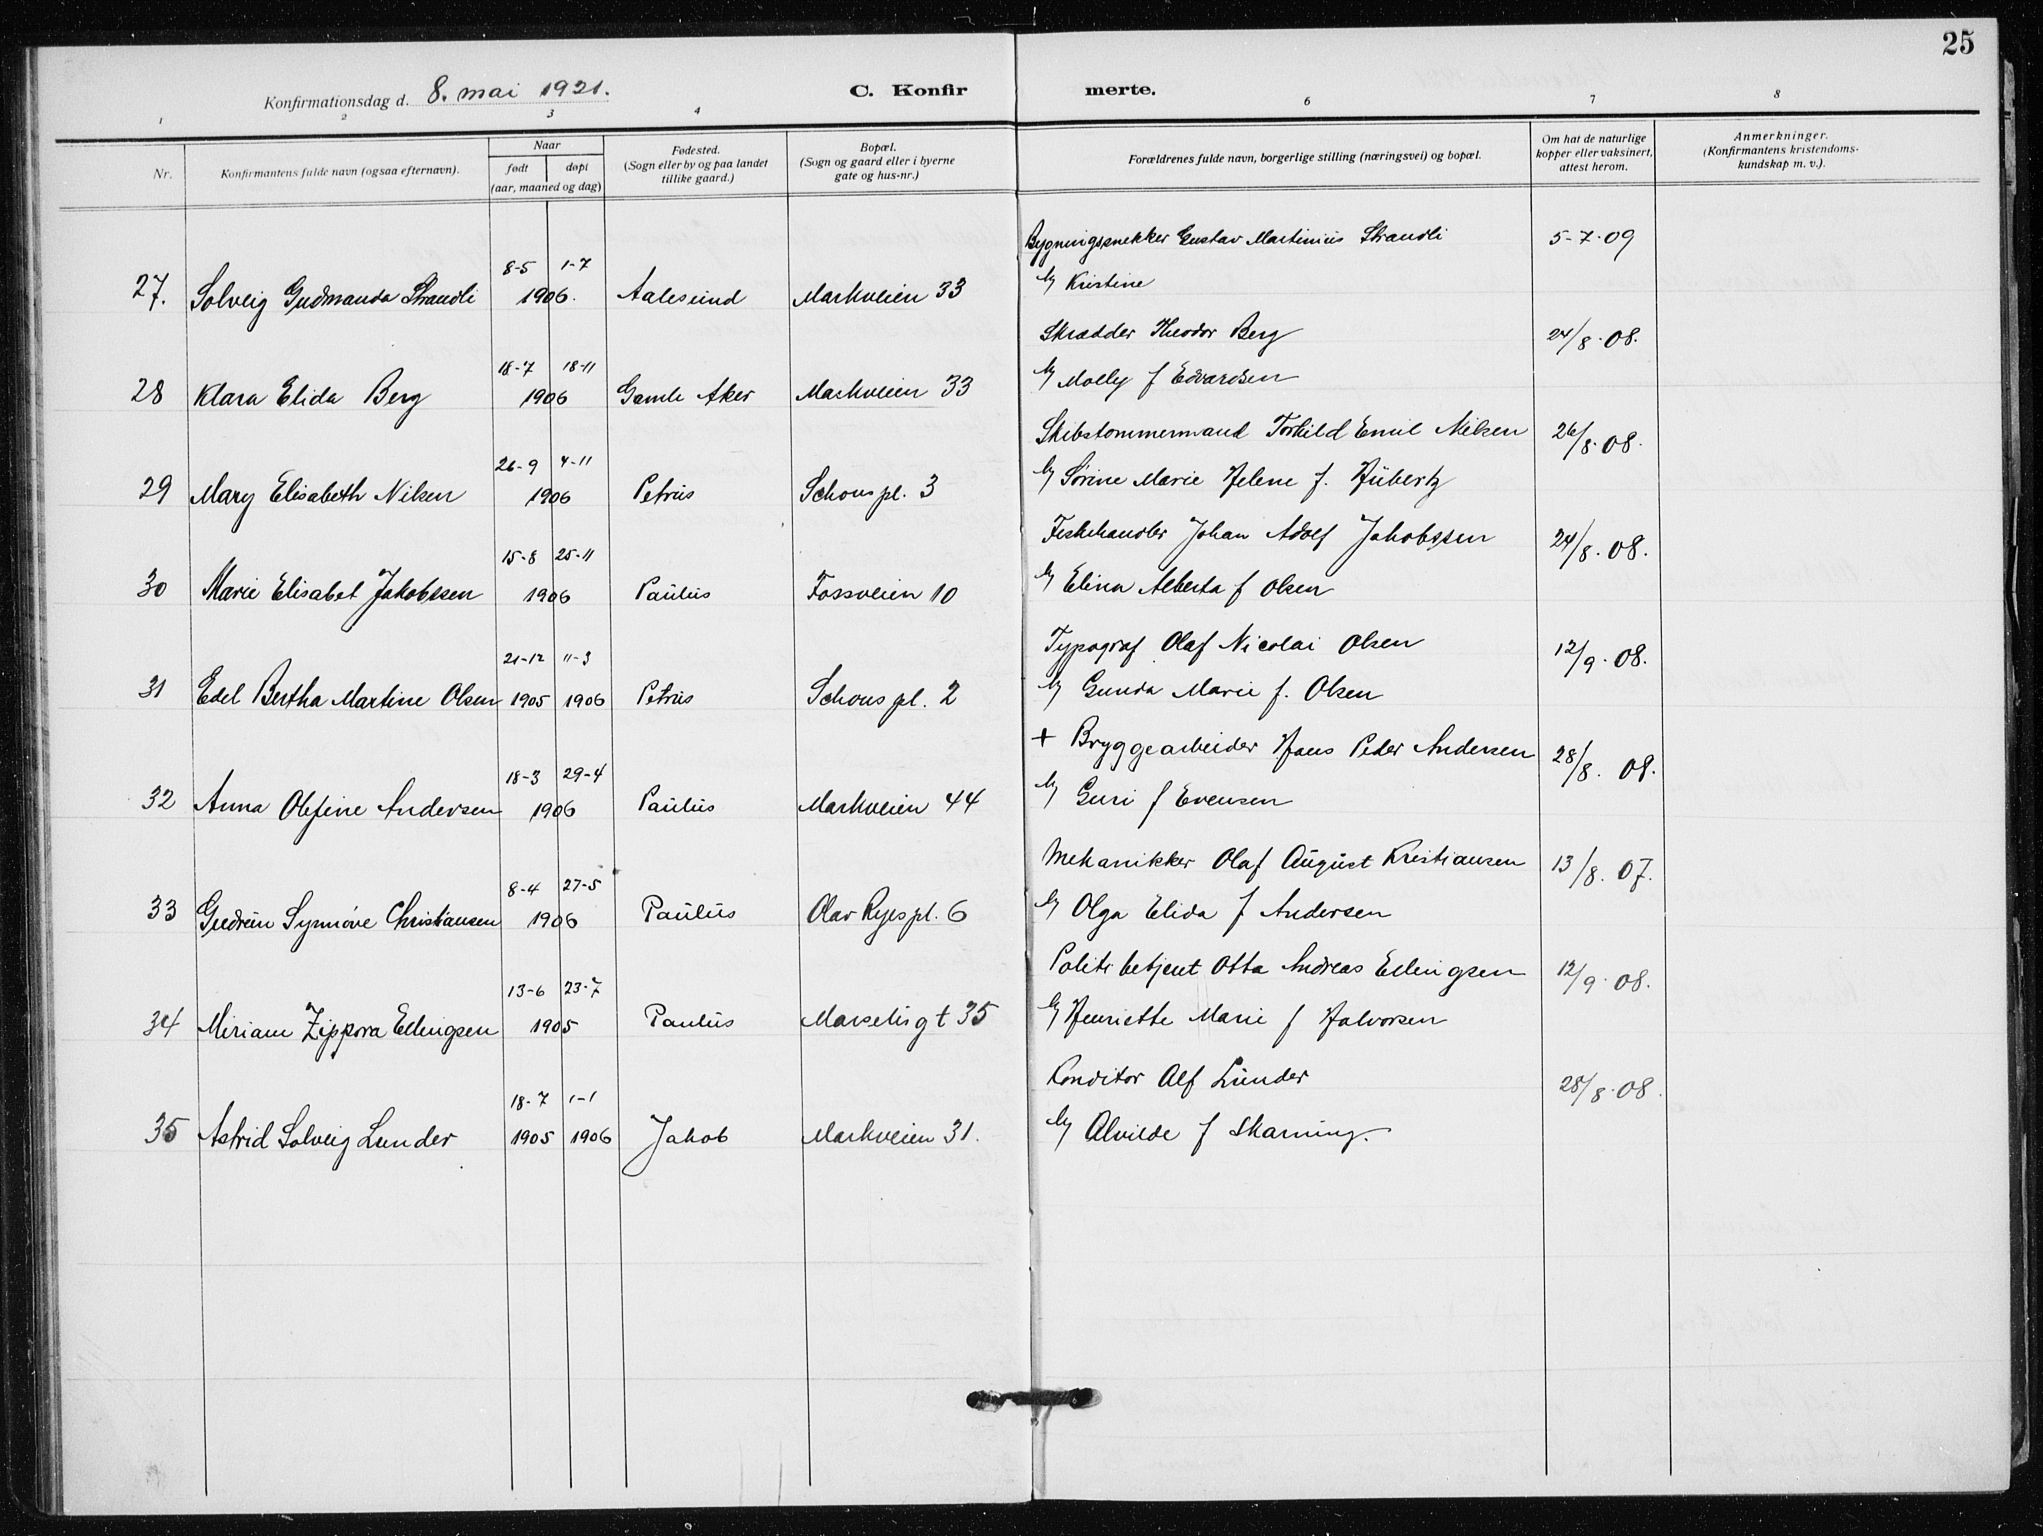 25
Konfirmationsdag d. 8. mai 1921.
C. Konfirmerte.
1 2 3 4 6 7 8
Nr.
Konfirmantens fulde navn (ogsaa efternavn).
Naar
født døpt
(aar, maaned og dag)
Fødested.
(Sogn eller by og paa landet
tillike gaard.)
Bopæl.
(Sogn og gaard eller i byerne
gate og hus-nr.)
Forældrenes fulde navn, borgerlige stilling (næringsvei) og bopæl.
Om hat de naturlige
kopper eller vaksinert,
attest herom.
Anmerkninger.
(Konfirmantens kristendoms-
kundskap m. v.).
Bygningssnekker Gustav Martinius Strandli 5-7-09
8-5 1-7
27. Solveig Gudmanda Strandli 1906. Aalesund Markveien 33 Kristine
Skrædder Theodor Berg 24/8.08.
18-7 18-11
28 Klara Elida Berg 1906 Gamle Aker Markveien 33 Molly f Edvardsen
Skibstømmermand Torkild Emil Nilsen 26/8.08.
26-9 4-11
29 Mary Elisabeth Nilsen 1906 Petrus Schous pl. 3 Sørine Marie Helene f. Hübertz
Fiskehandler Johan Adolf Jakobssen 24/8.08.
15-8 25-11
30 Marie Elisabet Jakobssen 1906 Paulus Fossveien 10 Elina Alberta f Olsen
Typograf Olaf Nicolai Olsen 12/9.08.
21-12 11-3
31 Edel Bertha Martine Olsen 1905 1906 Petrus Schous pl. 2 Gunda Marie f. Olsen
+ Bryggearbeider Hans Peder Andersen 28/8. 08.
18-3 29-4
32 Anna Olefine Andersen 1906 Paulus Markveien 44 Guri f Evensen
Mekanikker Olaf August Kristiansen 13/8. 07.
8-4 27-5
33 Gudrun Synnøve Christiansen 1906 Paulus Olav Ryes pl. 6 Olga Elida f Andersen
Politibetjent Otto Andreas Ellingsen 12/9.08.
13-6 23-7
34 Miriam Zippora Ellingsen 1905 Paulus Marselis gt 35 Henriette Marie f Halvorsen
Konditor Alf Lunder 28/8.08.
18-7 1-1
35 Astrid Solveig Lunder 1905 1906 Jakob Markveien 31. Alvilde f Skarning.